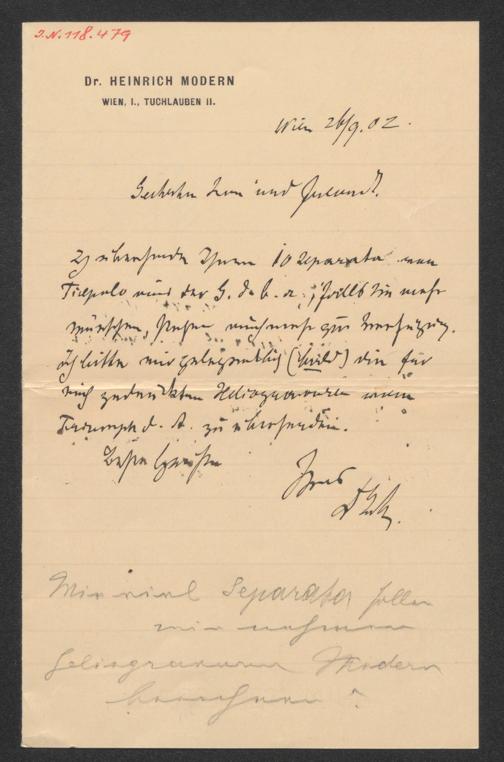 I.N. 118.479
Dr. HEINRICH MODERN
WIEN, I., TUCHLAUBEN 11.
Wien 26/9. 02.
Geehrter Herr und Freund!
Ich übersende Ihnen 10 Separata vom
Tiepolo aus der G. d. b. a.; falls Sie mehr
wünschen, stehen auch mehr zur Verfügung.
Ich bitte mir gelegentlich (bald) die für
mich gedruckten Heliogravuren vom
Triumph d. A. zu übersenden.
Beste Grüße
Ihres
Wie viel Separata sollen
wir nehmen
Heliogravuren Modern
berechnen?